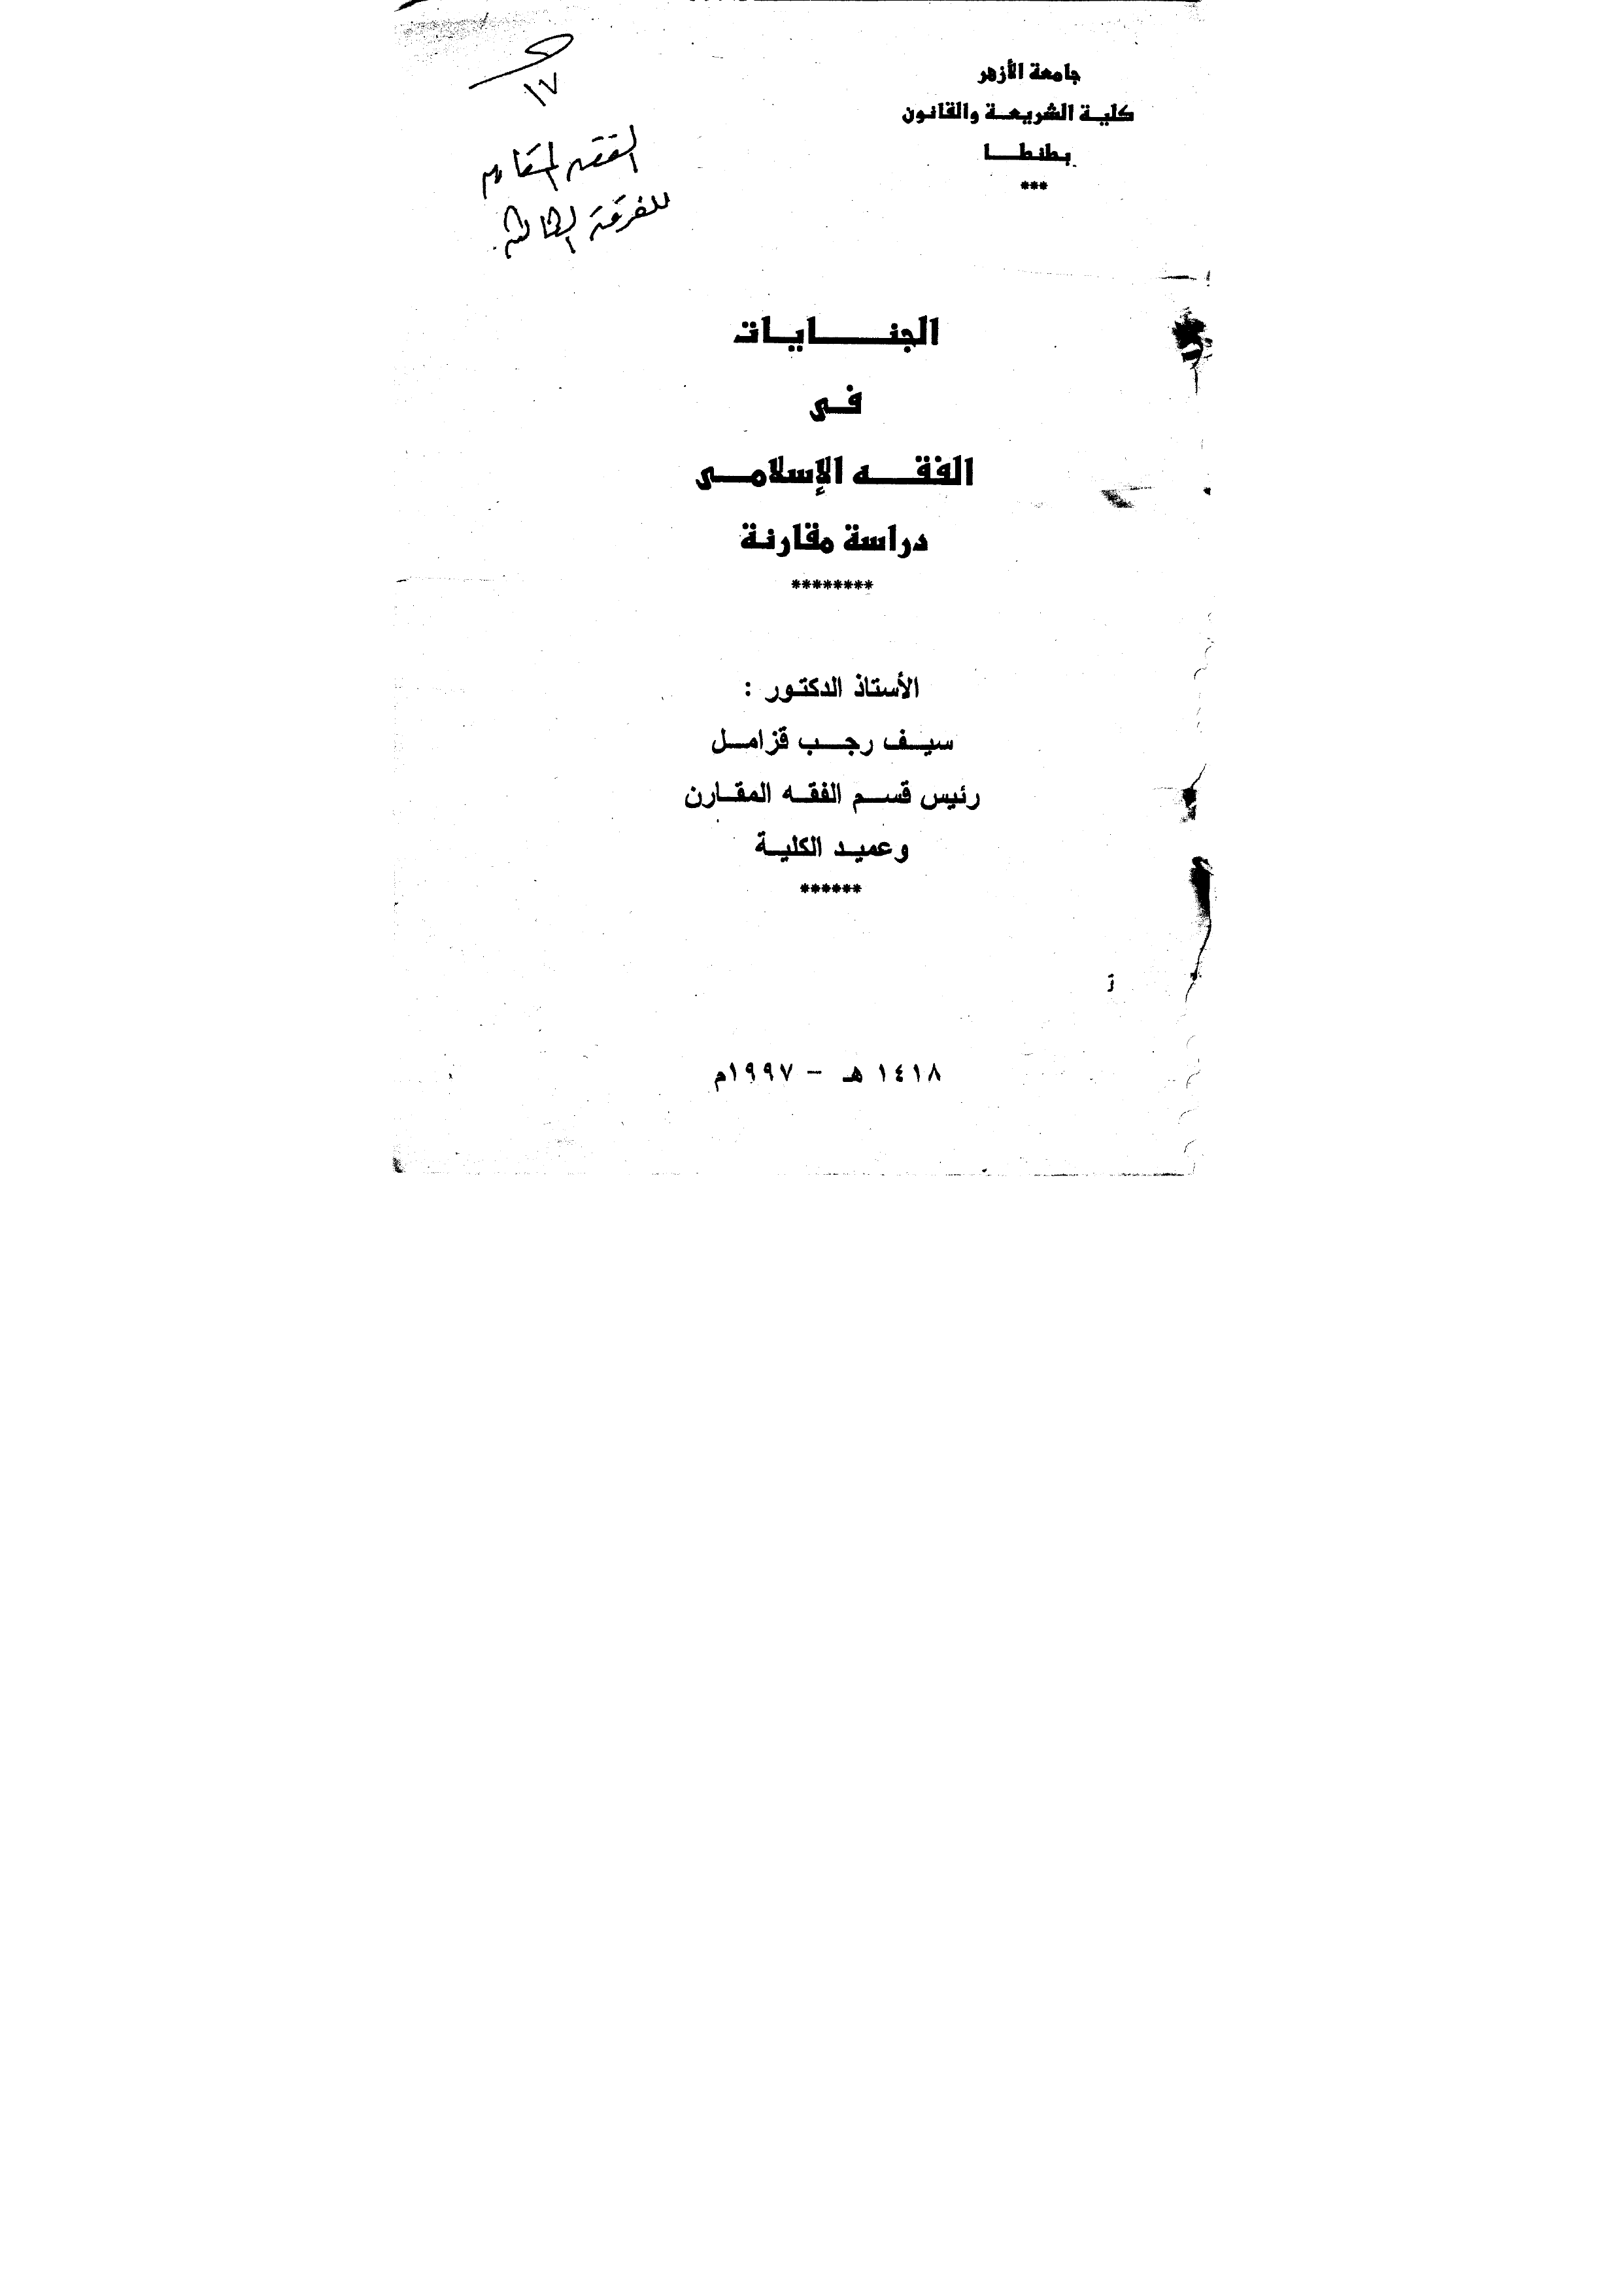 جامعة الأزهر
كلية الشريعة والقانون
بطنطا
***
١٧
الفقه المقارن
للفرقة الثالثة
الجنايات
فى
الفقه الإسلامى
دراسة مقارنة
********
الأستاذ الدكتور :
سيف رجب قزامل
رئيس قسم الفقه المقارن
وعميد الكلية
******
١٤١٨ هـ - ١٩٩٧م